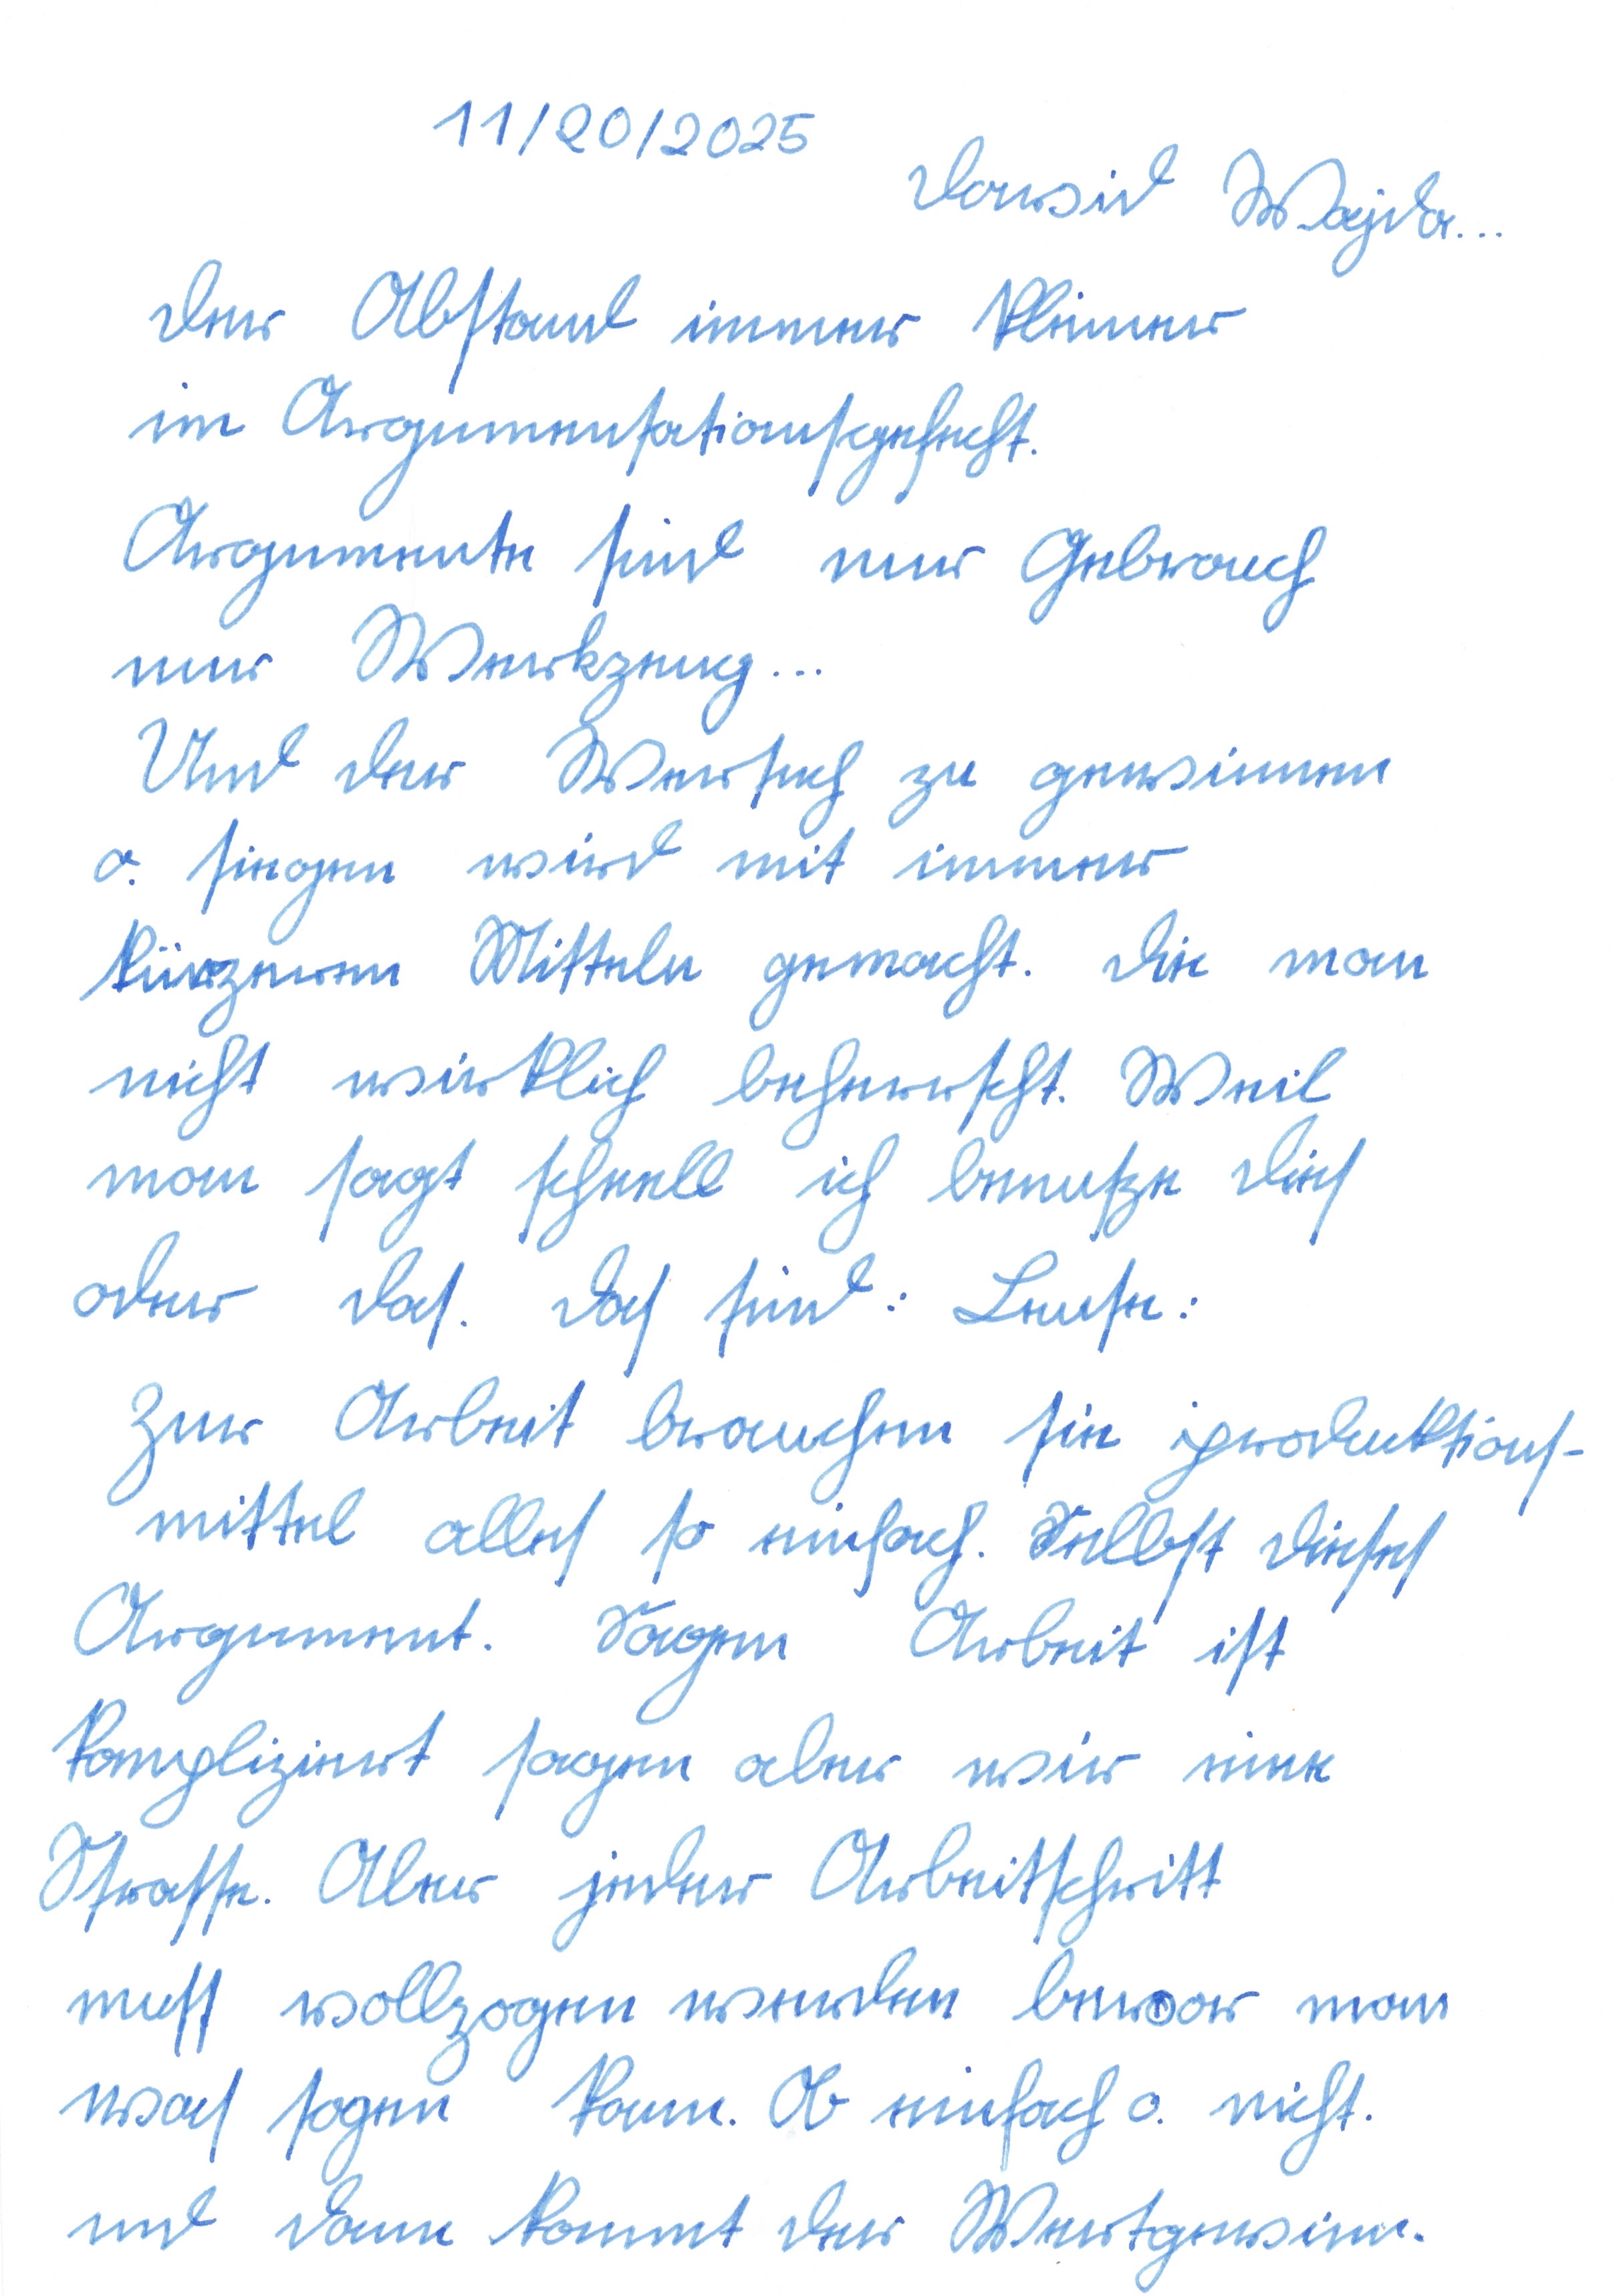 11/20/2025
Dawid Wajda...
Der Abstand immer kleiner
im Argumentationsgefecht.
Argumente sind nur Gebrauch
nur Werkzeug...
Und der Versuch zu gewinnen
o. siegen wird mit immer
kürzeren Mitteln gemacht. Die man
nicht wirklich beherrscht. Weil
man sagt schnell ich benutze dies
oder das. Das sind: Leute:
Zur Arbeit brauchen sie produktions-
mittel alles so einfach. Selbst dieses
Argument. Sagen Arbeit ist
kompliziert sagen aber wir eine
Strasse. Aber jeder Arbeitschritt
muss vollzogen werden bevor man
was sagen kann. Ob einfach o. nicht.
und dann kommt der Wertgewinn.